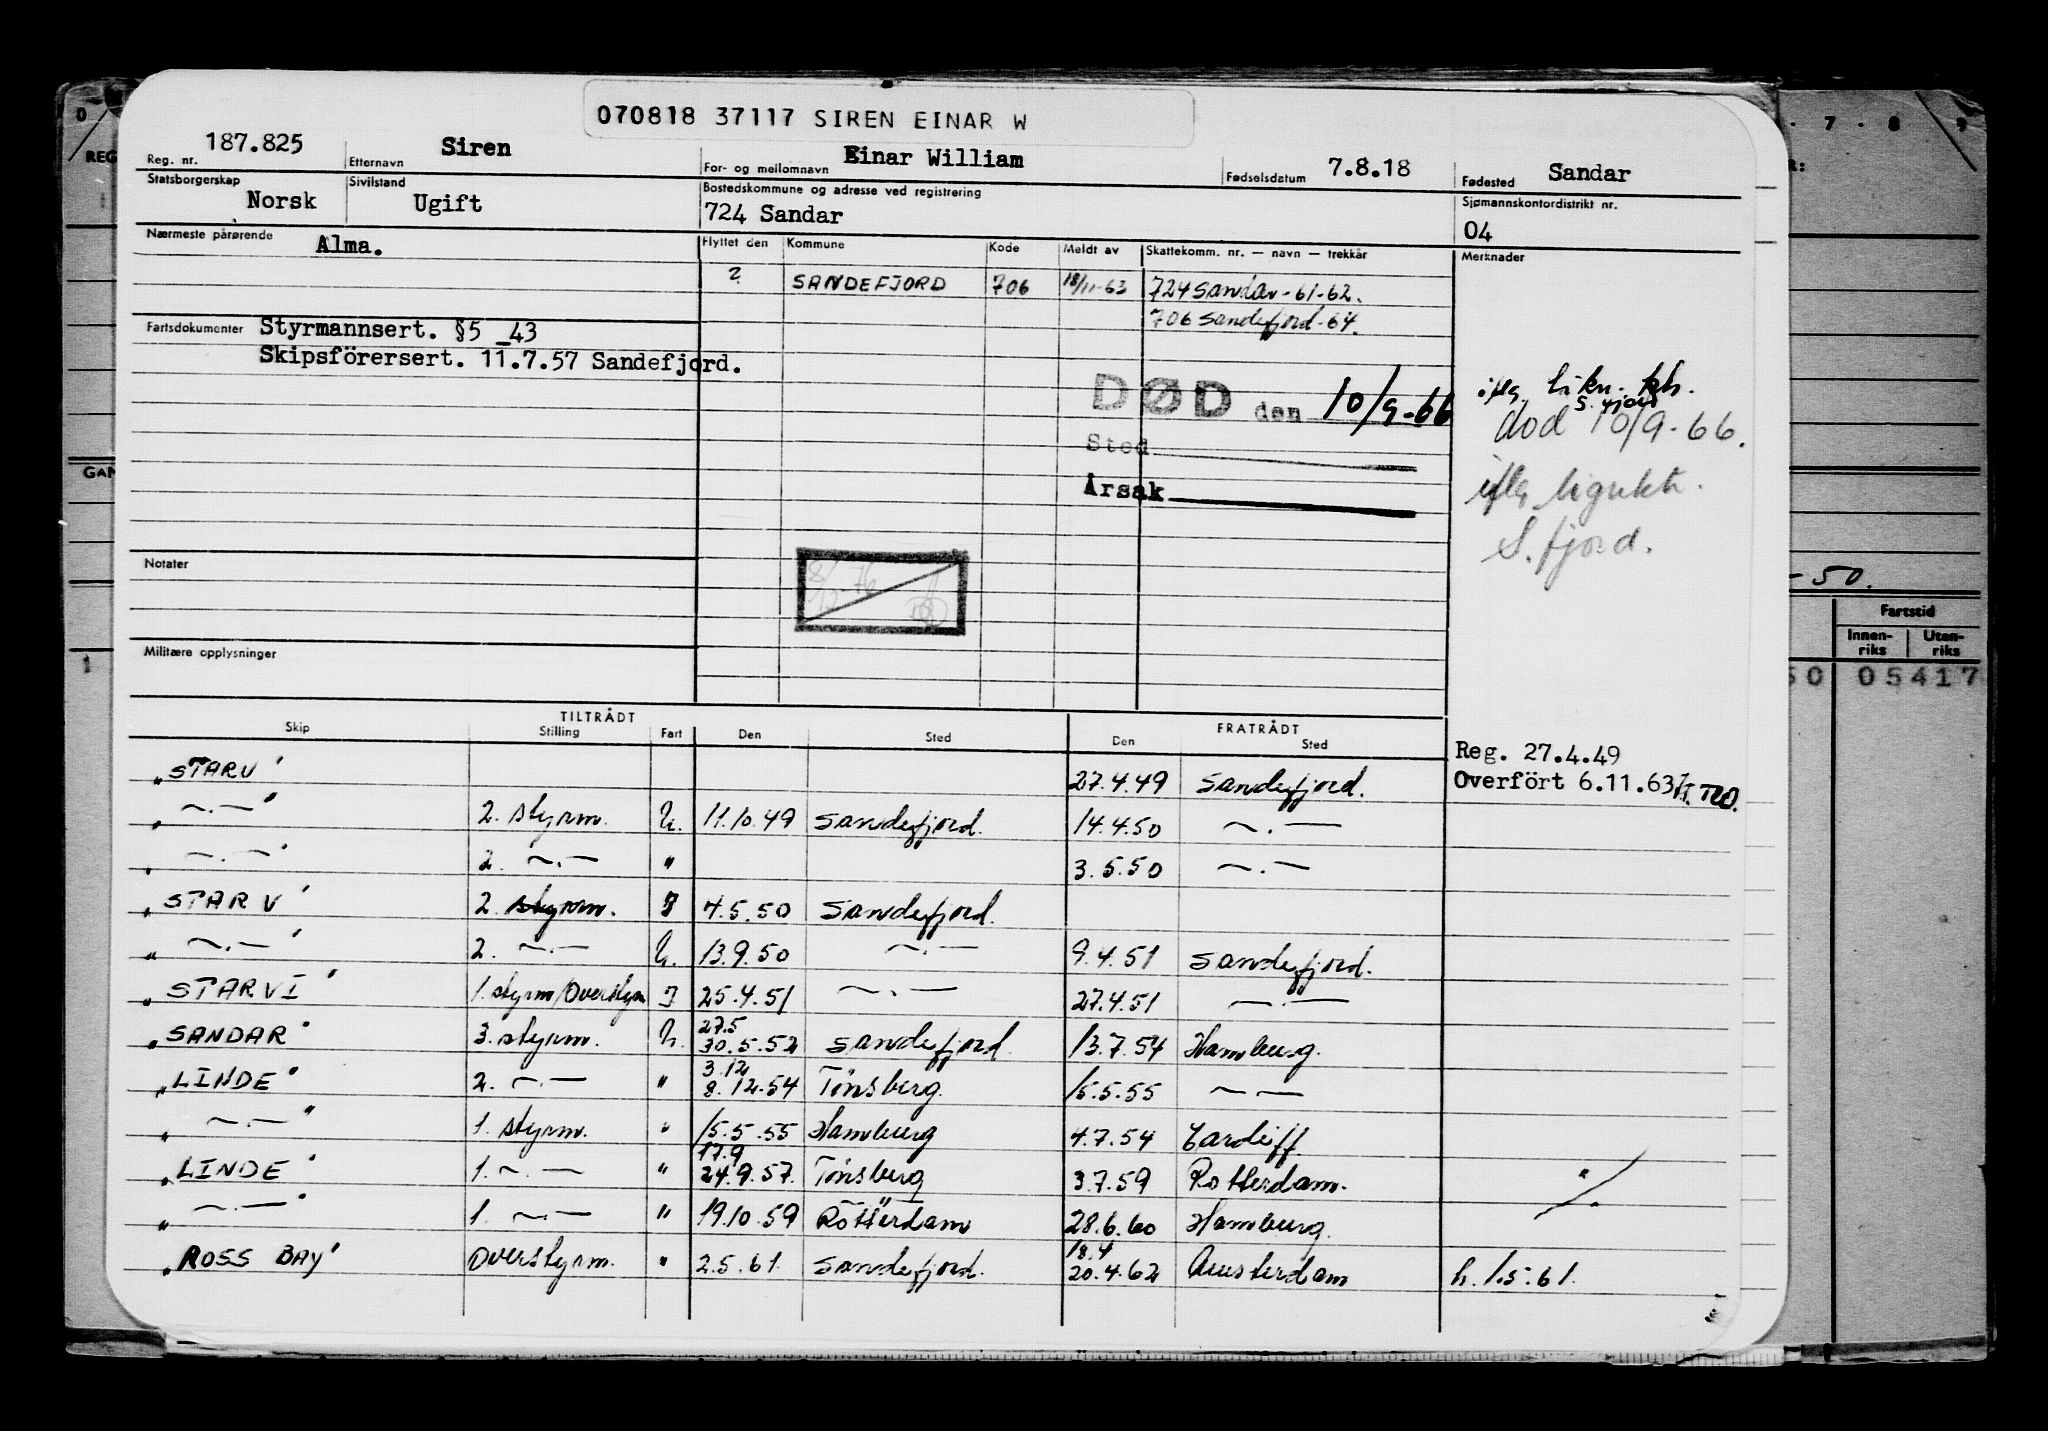 070818 37117 SIREN EINAR W
187.825 Siren Einar William 7.8.18 Sandar
Reg. nr. Etternavn For- og mellomnavn Fødselsdatum Fødested
Statsborgerskap Sivilstand Bostedskommune og adresse ved registrering Sjømannskontordistrikt nr.
Norsk Ugift 724 Sandar 04
Nærmeste pårørende Alma. Flyttet den Kommune Kode Meldt av Skattekomm. nr. — navn — trekkår Merknader
? SANDEFJORD 706 18/11-63 724 Sandar-61-62.
706 Sandefjord-64.
Fartsdokumenter Styrmannsert. §5 _43
Skipsförersert. 11.7.57 Sandefjord.
DØD den 10/9-66
Sted
Årsak
iflg. likn. kt.
S. fjord
død 10/9-66.
iflg. lignktr.
S. fjord.
Notater
Militære opplysninger
TILTRÅDT FRATRÅDT
Skip Stilling Fart Den Sted Den Sted
Reg. 27.4.49
Overfört 6.11.63
"STAR V" 27.4.49 Sandefjord.
" ~.— " 2. styrm. U. 11.10.49 Sandefjord. 14.4.50 ~.—
" ~.— " 2. ~.— " 3.5.50 ~.—
"STAR V" 2. styrm. I 4.5.50 Sandefjord.
" ~.— " 2. ~.— U. 13.9.50 ~.— 9.4.51 Sandefjord.
"STAR VI" 1. styrm/Overstyrm I 25.4.51 ~.— 27.4.51 ~.—
"SANDAR" 3. styrm. U. 27.5 30.5.52 Sandefjord 13.7.54 Hamburg.
"LINDE" 2. ~.— " 3.12 8.12.54 Tönsberg. 15.5.55 ~ —
" ~.— " 1. styrm. " 15.5.55 Hamburg 4.7.54 Cardiff.
"LINDE" 1. ~.— " 17.9 24.9.57. Tönsberg 3.7.59 Rotterdam.
" ~.— " 1. ~.— " 19.10.59 Rotterdam 28.6.60 Hamburg.
"ROSS BAY" Overstyrm. " 2.5.61 Sandefjord. 18.4 20.4.62 Amsterdam h. 1.5.61.
0
REG
GAN
1
7 . 8 . 9
R:
-50.
Fartstid
Innen-riks Uten-riks
50 05417